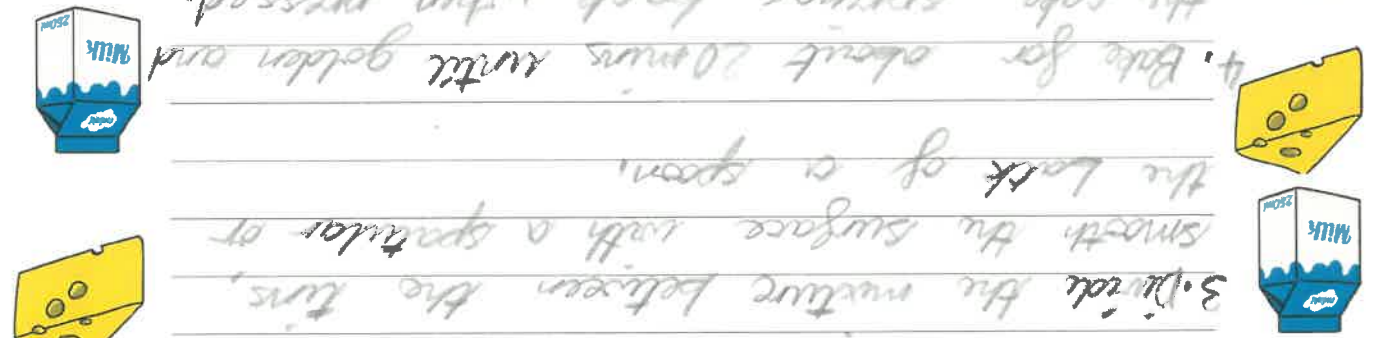 3. Divide the mixture between the tins,
smooth the surface with a spactular or
the back of a spoon.
4. Bake for about 20mins until golden and
the cake springs back when pressed.
Milk
250ml
Milk
250ml